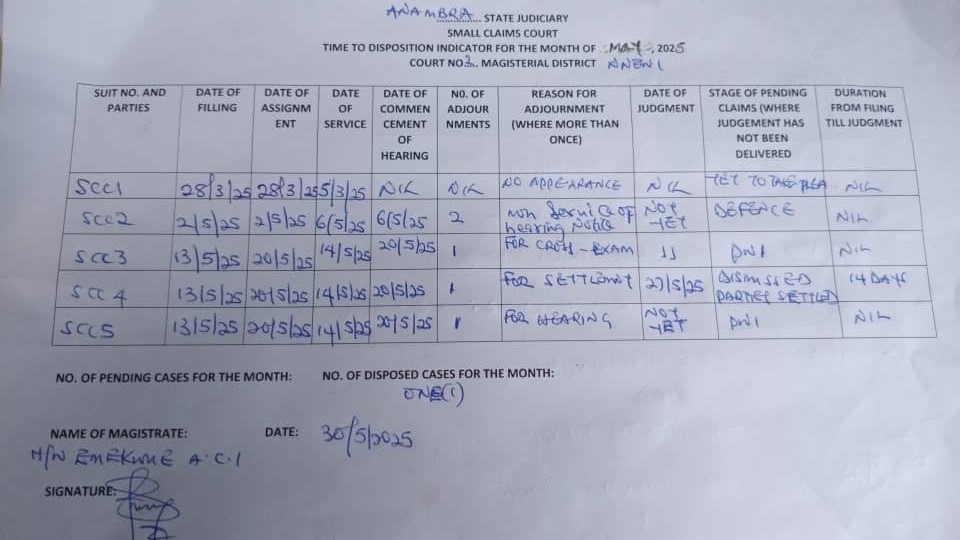 ANAMBRA STATE JUDICIARY
SMALL CLAIMS COURT
TIME TO DISPOSITION INDICATOR FOR THE MONTH OF MAY, 2025
COURT NO 2. MAGISTERIAL DISTRICT NNEWI
SUIT NO. AND PARTIES | DATE OF FILLING | DATE OF ASSIGNM ENT | DATE OF SERVICE | DATE OF COMMEN CEMENT OF HEARING | NO. OF ADJOUR NMENTS | REASON FOR ADJOURNMENT (WHERE MORE THAN ONCE) | DATE OF JUDGMENT | STAGE OF PENDING CLAIMS (WHERE JUDGEMENT HAS NOT BEEN DELIVERED | DURATION FROM FILING TILL JUDGMENT
SCC1 | 28/3/25 | 28/3/25 | 5/3/25 | NIL | NIL | NO APPEARANCE | NIL | YET TO TAKE PLEA | NIL
SCC2 | 2/5/25 | 2/5/25 | 6/5/25 | 6/5/25 | 2 | non Service of hearing Notice | NOT YET | DEFENCE | NIL
SCC3 | 13/5/25 | 20/5/25 | 14/5/25 | 20/5/25 | 1 | FOR CROSS-EXAM | 11 | PW1 | NIL
SCC4 | 13/5/25 | 20/5/25 | 14/5/25 | 20/5/25 | 1 | FOR SETTLEMNT | 27/5/25 | DISMISSED PARTIES SETTLED | 14 DAYS
SCC5 | 13/5/25 | 20/5/25 | 14/5/25 | 20/5/25 | 1 | FOR HEARING | NOT YET | PW1 | NIL
NO. OF PENDING CASES FOR THE MONTH: NO. OF DISPOSED CASES FOR THE MONTH:
ONE(1)
NAME OF MAGISTRATE: DATE: 30/5/2025
H/W EMEKWUE A.C.I
SIGNATURE: